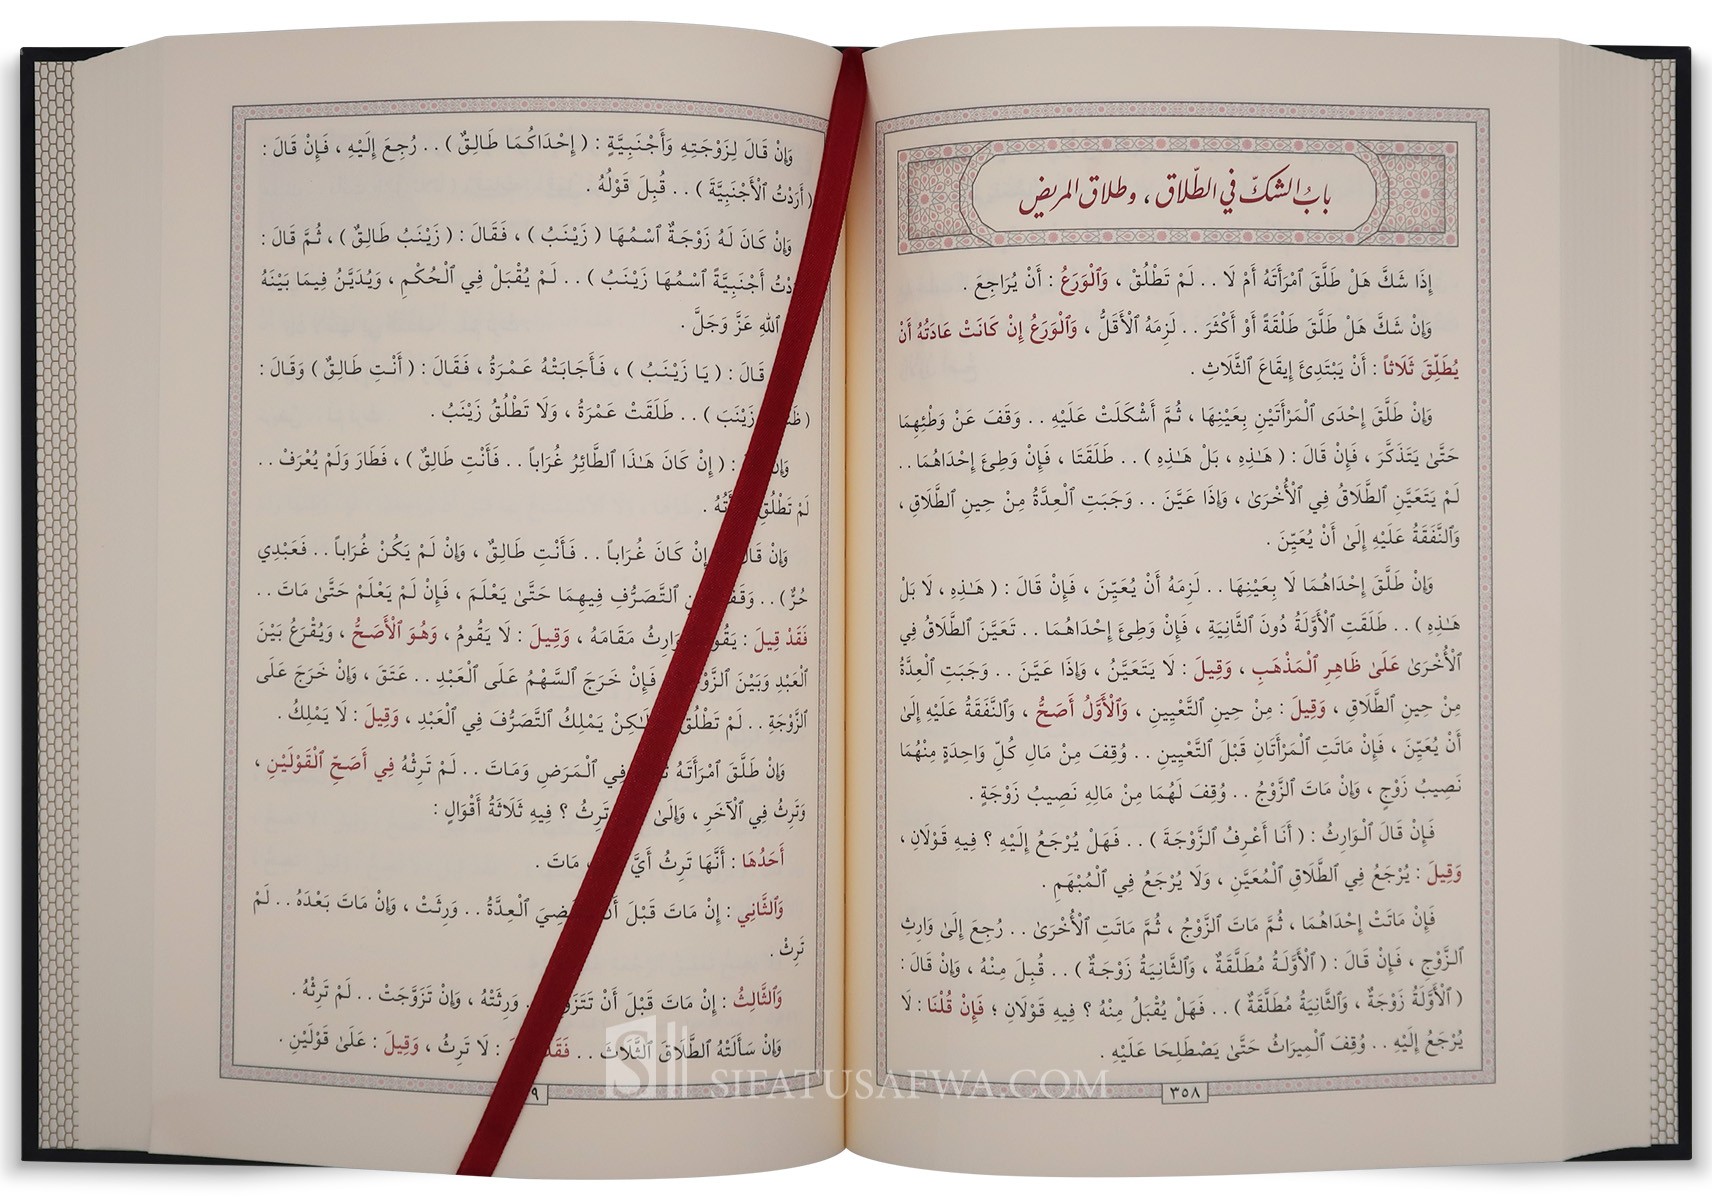 بابُ الشك في الطّلاق ، وطلاق المريض
إِذَا شَكَّ هَلْ طَلَّقَ ٱمْرَأَتَهُ أَمْ لَا .. لَمْ تَطْلُقْ ، وَٱلْوَرَعُ : أَنْ يُرَاجِعَ .
وَإِنْ شَكَّ هَلْ طَلَّقَ طَلْقَةً أَوْ أَكْثَرَ .. لَزِمَهُ ٱلْأَقَلُّ ، وَٱلْوَرَعُ إِنْ كَانَتْ عَادَتُهُ أَنْ
يُطَلِّقَ ثَلَاثاً : أَنْ يَبْتَدِئَ إِيقَاعَ ٱلثَّلَاثِ .
وَإِنْ طَلَّقَ إِحْدَى ٱلْمَرْأَتَيْنِ بِعَيْنِهَا ، ثُمَّ أَشْكَلَتْ عَلَيْهِ .. وَقَفَ عَنْ وَطْئِهِمَا
حَتَّىٰ يَتَذَكَّرَ ، فَإِنْ قَالَ : ( هَـٰذِهِ ، بَلْ هَـٰذِهِ ) .. طَلَقَتَا ، فَإِنْ وَطِئَ إِحْدَاهُمَا ..
لَمْ يَتَعَيَّنِ ٱلطَّلَاقُ فِي ٱلْأُخْرَىٰ ، وَإِذَا عَيَّنَ .. وَجَبَتِ ٱلْعِدَّةُ مِنْ حِينِ ٱلطَّلَاقِ ،
وَٱلنَّفَقَةُ عَلَيْهِ إِلَىٰ أَنْ يُعَيِّنَ .
وَإِنْ طَلَّقَ إِحْدَاهُمَا لَا بِعَيْنِهَا .. لَزِمَهُ أَنْ يُعَيِّنَ ، فَإِنْ قَالَ : ( هَـٰذِهِ ، لَا بَلْ
هَـٰذِهِ ) .. طَلَقَتِ ٱلْأَوَّلَةُ دُونَ ٱلثَّانِيَةِ ، فَإِنْ وَطِئَ إِحْدَاهُمَا .. تَعَيَّنَ ٱلطَّلَاقُ فِي
ٱلْأُخْرَىٰ عَلَىٰ ظَاهِرِ ٱلْمَذْهَبِ ، وَقِيلَ : لَا يَتَعَيَّنُ ، وَإِذَا عَيَّنَ .. وَجَبَتِ ٱلْعِدَّةُ
مِنْ حِينِ ٱلطَّلَاقِ ، وَقِيلَ : مِنْ حِينِ ٱلتَّعْيِينِ ، وَٱلْأَوَّلُ أَصَحُّ ، وَٱلنَّفَقَةُ عَلَيْهِ إِلَىٰ
أَنْ يُعَيِّنَ ، فَإِنْ مَاتَتِ ٱلْمَرْأَتَانِ قَبْلَ ٱلتَّعْيِينِ .. وُقِفَ مِنْ مَالِ كُلِّ وَاحِدَةٍ مِنْهُمَا
نَصِيبُ زَوْجٍ ، وَإِنْ مَاتَ ٱلزَّوْجُ .. وُقِفَ لَهُمَا مِنْ مَالِهِ نَصِيبُ زَوْجَةٍ .
فَإِنْ قَالَ ٱلْوَارِثُ : ( أَنَا أَعْرِفُ ٱلزَّوْجَةَ ) .. فَهَلْ يُرْجَعُ إِلَيْهِ ؟ فِيهِ قَوْلَانِ ،
وَقِيلَ : يُرْجَعُ فِي ٱلطَّلَاقِ ٱلْمُعَيَّنِ ، وَلَا يُرْجَعُ فِي ٱلْمُبْهَمِ .
فَإِنْ مَاتَتْ إِحْدَاهُمَا ، ثُمَّ مَاتَ ٱلزَّوْجُ ، ثُمَّ مَاتَتِ ٱلْأُخْرَىٰ .. رُجِعَ إِلَىٰ وَارِثِ
ٱلزَّوْجِ ، فَإِنْ قَالَ : ( ٱلْأَوَّلَةُ مُطَلَّقَةٌ ، وَٱلثَّانِيَةُ زَوْجَةٌ ) .. قُبِلَ مِنْهُ ، وَإِنْ قَالَ :
( ٱلْأَوَّلَةُ زَوْجَةٌ ، وَٱلثَّانِيَةُ مُطَلَّقَةٌ ) .. فَهَلْ يُقْبَلُ مِنْهُ ؟ فِيهِ قَوْلَانِ ؛ فَإِنْ قُلْنَا : لَا
يُرْجَعُ إِلَيْهِ .. وُقِفَ ٱلْمِيرَاثُ حَتَّىٰ يَصْطَلِحَا عَلَيْهِ .
٣٥٨
وَإِنْ قَالَ لِزَوْجَتِهِ وَأَجْنَبِيَّةٍ : ( إِحْدَاكُمَا طَالِقٌ ) .. رُجِعَ إِلَيْهِ ، فَإِنْ قَالَ :
( أَرَدْتُ ٱلْأَجْنَبِيَّةَ ) .. قُبِلَ قَوْلُهُ .
وَإِنْ كَانَ لَهُ زَوْجَةٌ ٱسْمُهَا ( زَيْنَبُ ) ، فَقَالَ : ( زَيْنَبُ طَالِقٌ ) ، ثُمَّ قَالَ :
أَجْنَبِيَّةً ٱسْمُهَا زَيْنَبُ ) .. لَمْ يُقْبَلْ فِي ٱلْحُكْمِ ، وَيُدَيَّنُ فِيمَا بَيْنَهُ
ٱللهِ عَزَّ وَجَلَّ .
قَالَ : ( يَا زَيْنَبُ ) ، فَأَجَابَتْهُ عَمْرَةُ ، فَقَالَ : ( أَنْتِ طَالِقٌ ) وَقَالَ :
زَيْنَبَ ) .. طَلَقَتْ عَمْرَةُ ، وَلَا تَطْلُقُ زَيْنَبُ .
وَإِنْ : ( إِنْ كَانَ هَـٰذَا ٱلطَّائِرُ غُرَاباً .. فَأَنْتِ طَالِقٌ ) ، فَطَارَ وَلَمْ يُعْرَفْ ..
لَمْ تَطْلُقِ .
وَإِنْ قَالَ إِنْ كَانَ غُرَاباً .. فَأَنْتِ طَالِقٌ ، وَإِنْ لَمْ يَكُنْ غُرَاباً .. فَعَبْدِي
حُرٌّ ) .. ٱلتَّصَرُّفِ فِيهِمَا حَتَّىٰ يَعْلَمَ ، فَإِنْ لَمْ يَعْلَمْ حَتَّىٰ مَاتَ ..
فَقَدْ قِيلَ : يَقُومُ مَقَامَهُ ، وَقِيلَ : لَا يَقُومُ ، وَهُوَ ٱلْأَصَحُّ ، وَيُقْرَعُ بَيْنَ
ٱلْعَبْدِ وَبَيْنَ فَإِنْ خَرَجَ ٱلسَّهْمُ عَلَى ٱلْعَبْدِ .. عَتَقَ ، وَإِنْ خَرَجَ عَلَى
ٱلزَّوْجَةِ .. لَمْ تَطْلُقْ يَمْلِكُ ٱلتَّصَرُّفَ فِي ٱلْعَبْدِ ، وَقِيلَ : لَا يَمْلِكُ .
وَإِنْ طَلَّقَ ٱمْرَأَتَهُ فِي ٱلْمَرَضِ وَمَاتَ .. لَمْ تَرِثْهُ فِي أَصَحِّ ٱلْقَوْلَيْنِ ،
وَتَرِثُ فِي ٱلْآخَرِ ، وَإِلَىٰ تَرِثُ ؟ فِيهِ ثَلَاثَةُ أَقْوَالٍ :
أَحَدُهَا : أَنَّهَا تَرِثُ أَيَّ مَاتَ .
وَٱلثَّانِي : إِنْ مَاتَ قَبْلَ أَنْ ٱلْعِدَّةُ .. وَرِثَتْ ، وَإِنْ مَاتَ بَعْدَهُ .. لَمْ
تَرِثْ .
وَٱلثَّالِثُ : إِنْ مَاتَ قَبْلَ أَنْ .. وَرِثَتْهُ ، وَإِنْ تَزَوَّجَتْ .. لَمْ تَرِثْهُ .
وَإِنْ سَأَلَتْهُ ٱلطَّلَاقَ ٱلثَّلَاثَ .. : لَا تَرِثُ ، وَقِيلَ : عَلَىٰ قَوْلَيْنِ .
٩
SIFATUSAFWA.COM